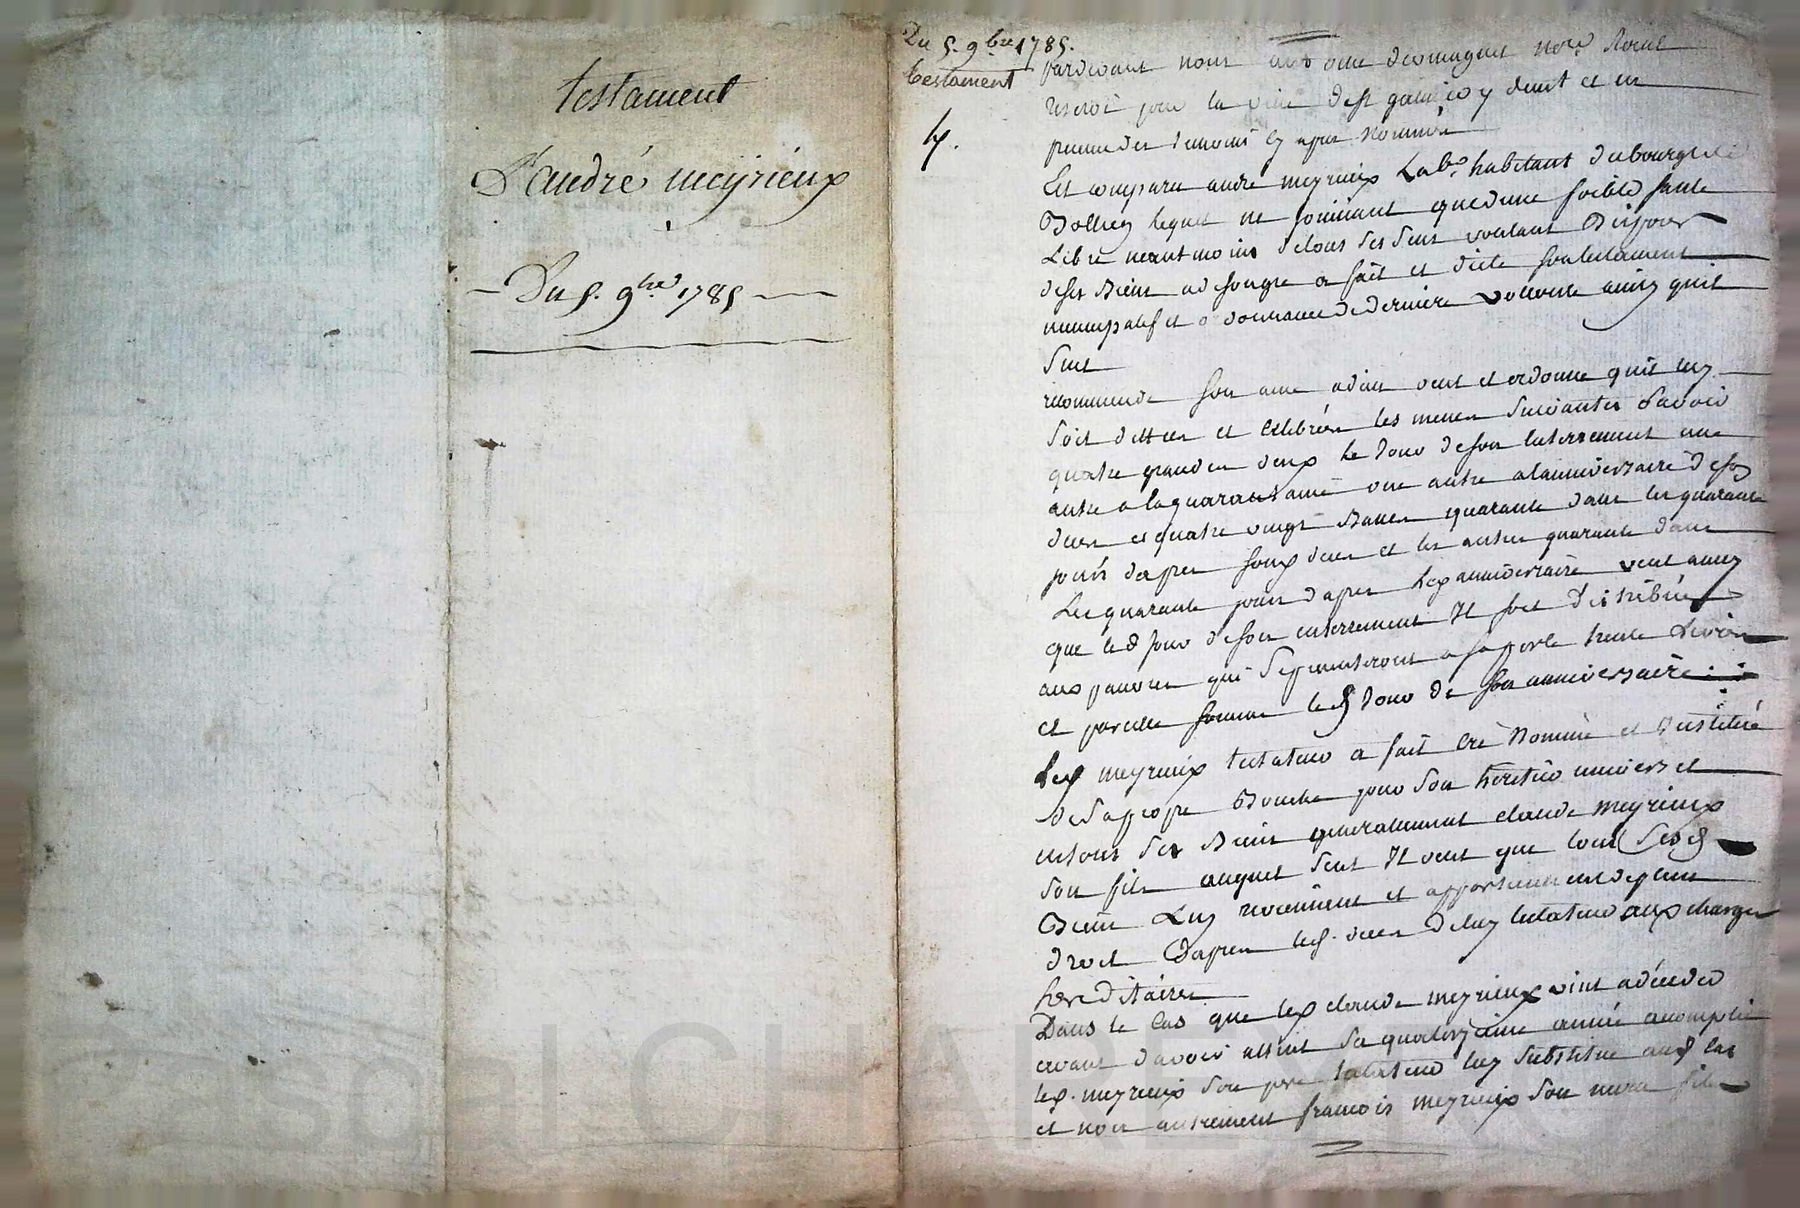 testament
D'andré meÿrieux
Du 5. 9bre 1785
Du 5. 9bre 1785.
testament
4.
pardevant nous
reservé pour la ville de st galmier y
presence des temoins cy apres Nommés
Est comparu andré meyrieux Lab.r habitant du bourg de
lequel ne jouissant que d'une foible santé
Libre neantmoins de tous ses sens voulant Disposer
de ses Biens a de son gré a fait et dicté son testament
nuncupatif et ordonnance de derniere volonté ainsy qu'il
suit
recommende son ame a dieu veut et ordonne qu'il luy
soit dittes et celebrées les messes suivantes scavoir
quatre grandes deux le jour de son enterrement une
autre a la quarantaine une autre a l'anniversaire de son
deces et quatre vingt Basses quarante dans les quarante
jours d'apres son deces et les autres quarante dans
Les quarante jours d'apres led anniversaire veut aussy
que led jour de son enterrement Il soit distribué
aux pauvres qui se presenteront a sa porte trente Livres
et pareille somme led jour de son anniversaire
Led meyrieux testateur a fait crée Nommé et institué
de sa propre Bouche pour son heretier universel
en tous ses Biens generalement claude meyrieux
son fils auquel seul Il veut que tous sesd
Biens Luy reviennent et appartiennent de plein
droit d'apres led. deces de luy testateur aux charges
hereditaires
Dans le Cas que led claude meyrieux vint a deceder
avant d'avoir atteint sa quatorzieme année accomplie
led. meyrieux son pere testateur luy substitue aud Cas
et non autrement francois meyrieux son autre fils